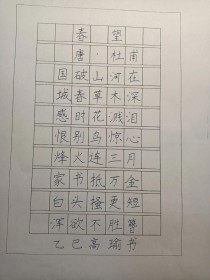 春望
唐·杜甫
国破山河在
城春草木深
感时花溅泪
恨别鸟惊心
烽火连三月
家书抵万金
白头搔更短
浑欲不胜簪
乙巳高瑜书